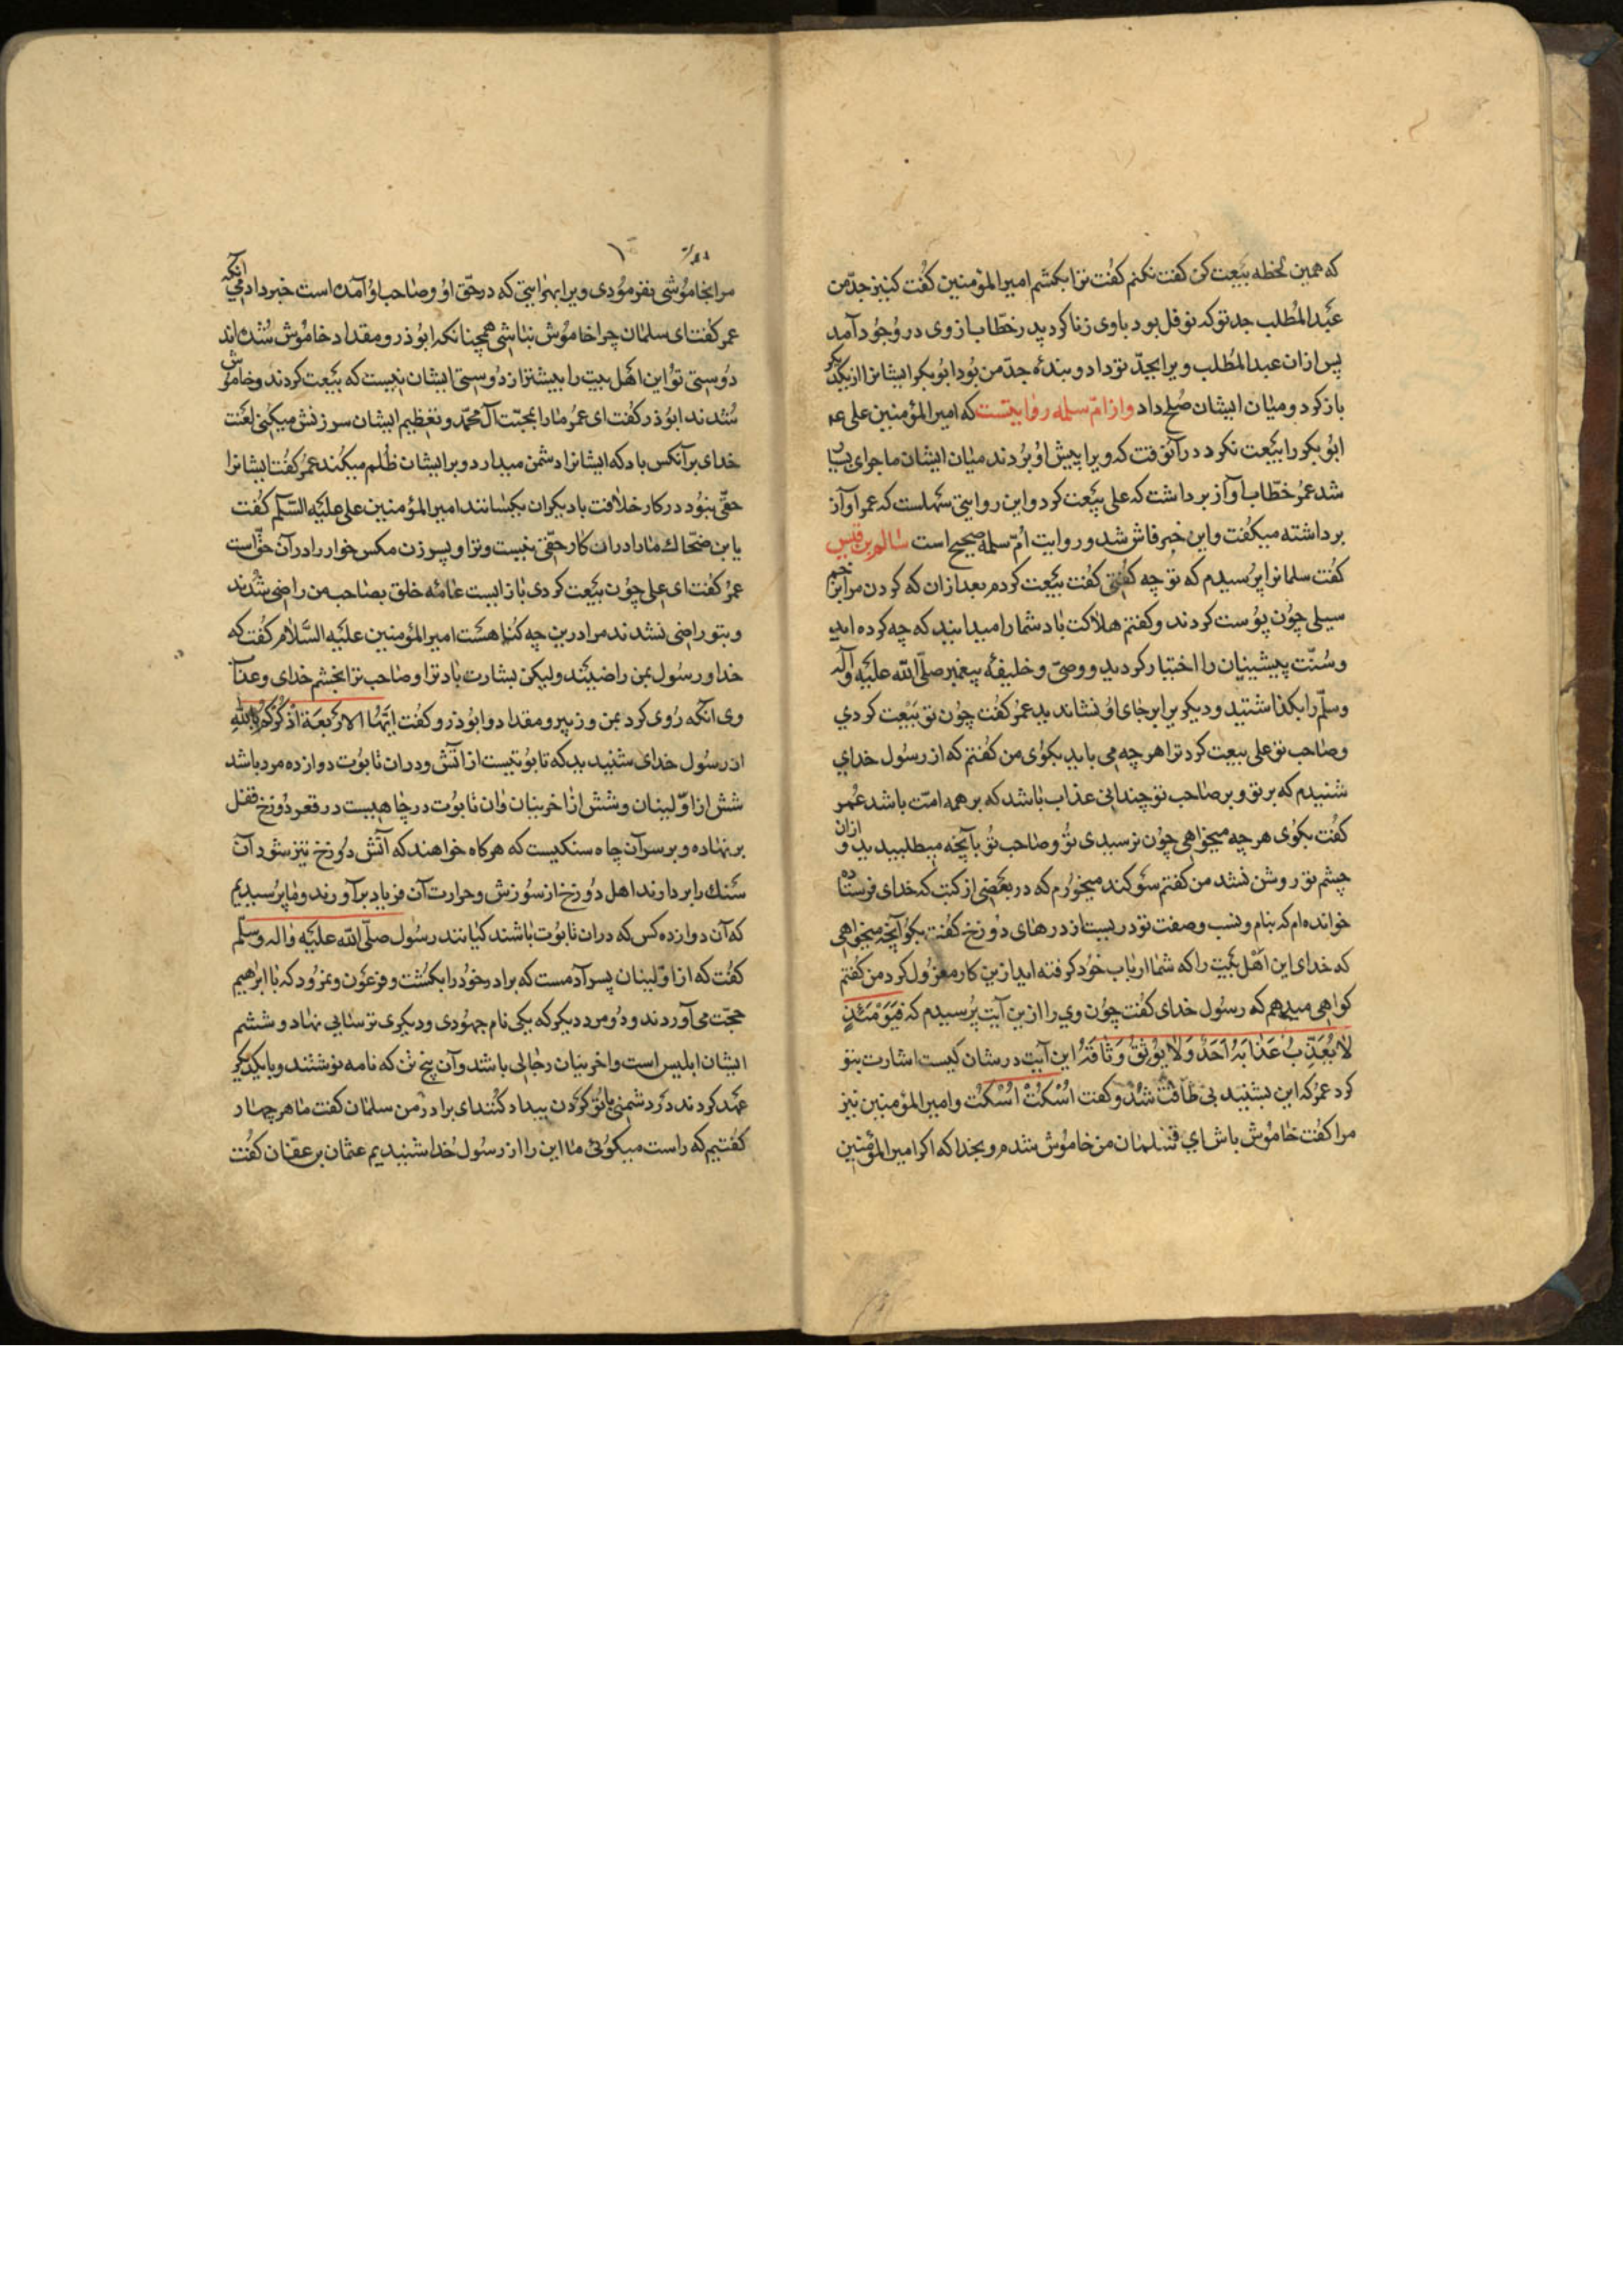 که همین لحظه بیعت کن کفت نکنم کفت ترا بکشم امیرالمؤمنین کفت کنیز جدّ من
عبد المطلب جد تو که نوفل بود باوی زنا کردید رخطّاب از وی در وجود آمد
پس ازان عبد المطلب ویرا بجدّ تو داد و بنده جدّ من بود ابوبکر ایشانرا از یکدیکر
باز کرد و میان ایشان صلح داد واز امّ سلمه روایتست که امیرالمؤمنین علی ع
ابوبکر را بیعت نکرد در آنوقت که ویرا پیش او بردند میان ایشان ماجرای
شد عمر خطّاب آواز برداشت که علی بیعت کرد و این روایتی سهلست که عمر آواز
برداشته میکفت و این خبر فاش شد و روایت امّ سلمه صحیح است سالم بن قیس
کفت سلمانرا پرسیدم که تو چه کفتی کفت بیعت کردم بعد ازان که کردن مرا بزخم
سیلی چون پوست کردند و کفتم هلاکت باد شما را میدانید که چه کرده اید
و سنّت پیشینیان را اختیار کردید و وصیّ و خلیفه پیغمبر صلّی الله علیه وآله
وسلّم را بکذاشتید و دیکریرا بر جای او نشاندید عمر کفت چون تو بیعت کردی
وصاحب تو علی بیعت کرد ترا هر چه می باید بکوی من کفتم که از رسول خدای
شنیدم که بر تو و بر صاحب تو چندانی عذاب باشد که بر همه امّت باشد عمر
کفت بکوی هر چه میخواهی چون نرسیدی تو وصاحب تو بآنچه میطلبیدید و ازان
چشم تو روشن نشد من کفتم سوکند میخورم که در بعضی از کتب که خدای فرستاده
خوانده ام که بنام و نسب و صفت تو در بیست از درهای دوزخ کفت بکو آنچه میخواهی
که خدای این اهل بیت را که شما ارباب خود کرفته اید ازین کار معزول کرد من کفتم
کواهی میدهم که رسول خدای کفت چون وی را ازین آیت پرسیدم که فَیَوْمَئِذٍ
لَا یُعَذِّبُ عَذَابَهُ اَحَدٌ وَلَا یُوثِقُ وَثَاقَهُ این آیت در شان کیست اشارت بتو
کرد عمر که این بشنید بی طاقت شد و کفت اُسْکُتْ اُسْکُتْ و امیرالمؤمنین نیز
مرا کفت خاموش باش ای سلمان من خاموش شدم و بخدا که اکر امیرالمؤمنین
مرا بخاموشی نفرمودی ویرا بهر آیتی که در حقّ او وصاحب او آمده است خبر دادمی آنکه
عمر کفت ای سلمان چرا خاموش نباشی همچنانکه ابوذر و مقداد خاموش شده اند
دوستی تو این اهل بیت را بیشتر از دوستی ایشان نیست که بیعت کردند و خاموش
شدند ابوذر کفت ای عمر ما را بمحبّت آل محمّد و تعظیم ایشان سرزنش میکنی لعنت
خدای بر آنکس باد که ایشانرا دشمن میدارد و بر ایشان ظلم میکند عمر کفت ایشانرا
حقّی نبود در کار خلافت با دیکران یکسانند امیرالمؤمنین علی علیه السّلم کفت
یا بن ضحّاک ما را دران کار حقّی نیست و ترا و پسر زن مکس خوار را در آن حقّ است
عمر کفت ای علی چون بیعت کردی باز ایست عامّه خلق بصاحب من راضی شدند
و بتو راضی نشدند مرا درین چه کناهست امیرالمؤمنین علیه السّلام کفت که
خدا و رسول بمن راضیند ولیکن بشارت باد ترا وصاحب ترا بخشم خدای و عذاب
وی آنکه روی کرد بمن و زبیر و مقداد و ابوذر و کفت ایّها الاربعة اذکرکم بالله
از رسول خدای شنیدید که تابوتیست از آتش و دران تابوت دوازده مرد باشد
شش از اوّلینان و شش از آخرینان وان تابوت در چاهیست در قعر دوزخ قفل
بر نهاده و بر سر آن چاه سنکیست که هر کاه خواهند که آتش دوزخ تیز شود آن
سنک را بردارند اهل دوزخ از سوزش و حرارت آن فریاد برآورند و ما پرسیدیم
که آن دوازده کس که دران تابوت باشند کیانند رسول صلّی الله علیه واله وسلم
کفت که از اوّلینان پسر آدمست که برادر خود را بکشت و فرعون و نمرود که با ابرهیم
حجّت می آوردند و دو مرد دیکر که یکی نام جهودی و دیکری ترسایی نهاد و ششم
ایشان ابلیس است و اخرینان دجّالی باشد و آن پنج تن که نامه نوشتند و با یکدیکر
عهد کردند در دشمنی با تو کردن بیداد کنند ای برادر من سلمان کفت ما هر چهار
کفتیم که راست میکوئی ما این را از رسول خدا شنیدیم عثمان بن عفّان کفت